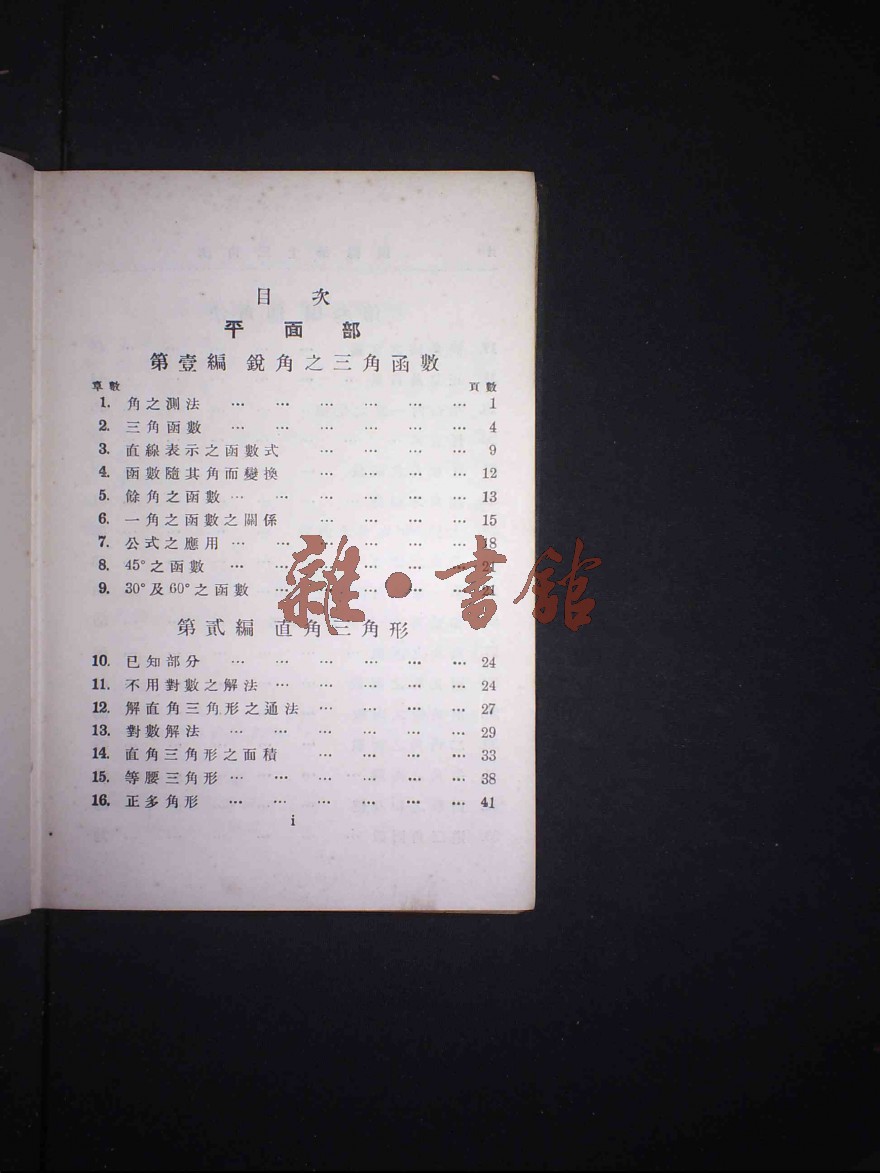 目次
平面部
第壹編 銳角之三角函數
章數 頁數
1. 角之測法 … … … … … … 1
2. 三角函數 … … … … … … 4
3. 直線表示之函數式 … … … … 9
4. 函數隨其角而變換 … … … … 12
5. 餘角之函數 … … … … … … 13
6. 一角之函數之關係 … … … … 15
7. 公式之應用 … … … … 18
8. 45°之函數 … … … … 21
9. 30°及60°之函數 … … … 21
第貳編 直角三角形
10. 已知部分 … … … … … … 24
11. 不用對數之解法 … … … … … 24
12. 解直角三角形之通法 … … … … 27
13. 對數解法 … … … … … … 29
14. 直角三角形之面積 … … … … 33
15. 等腰三角形 … … … … … … 38
16. 正多角形 … … … … … … 41
i
雜·書館